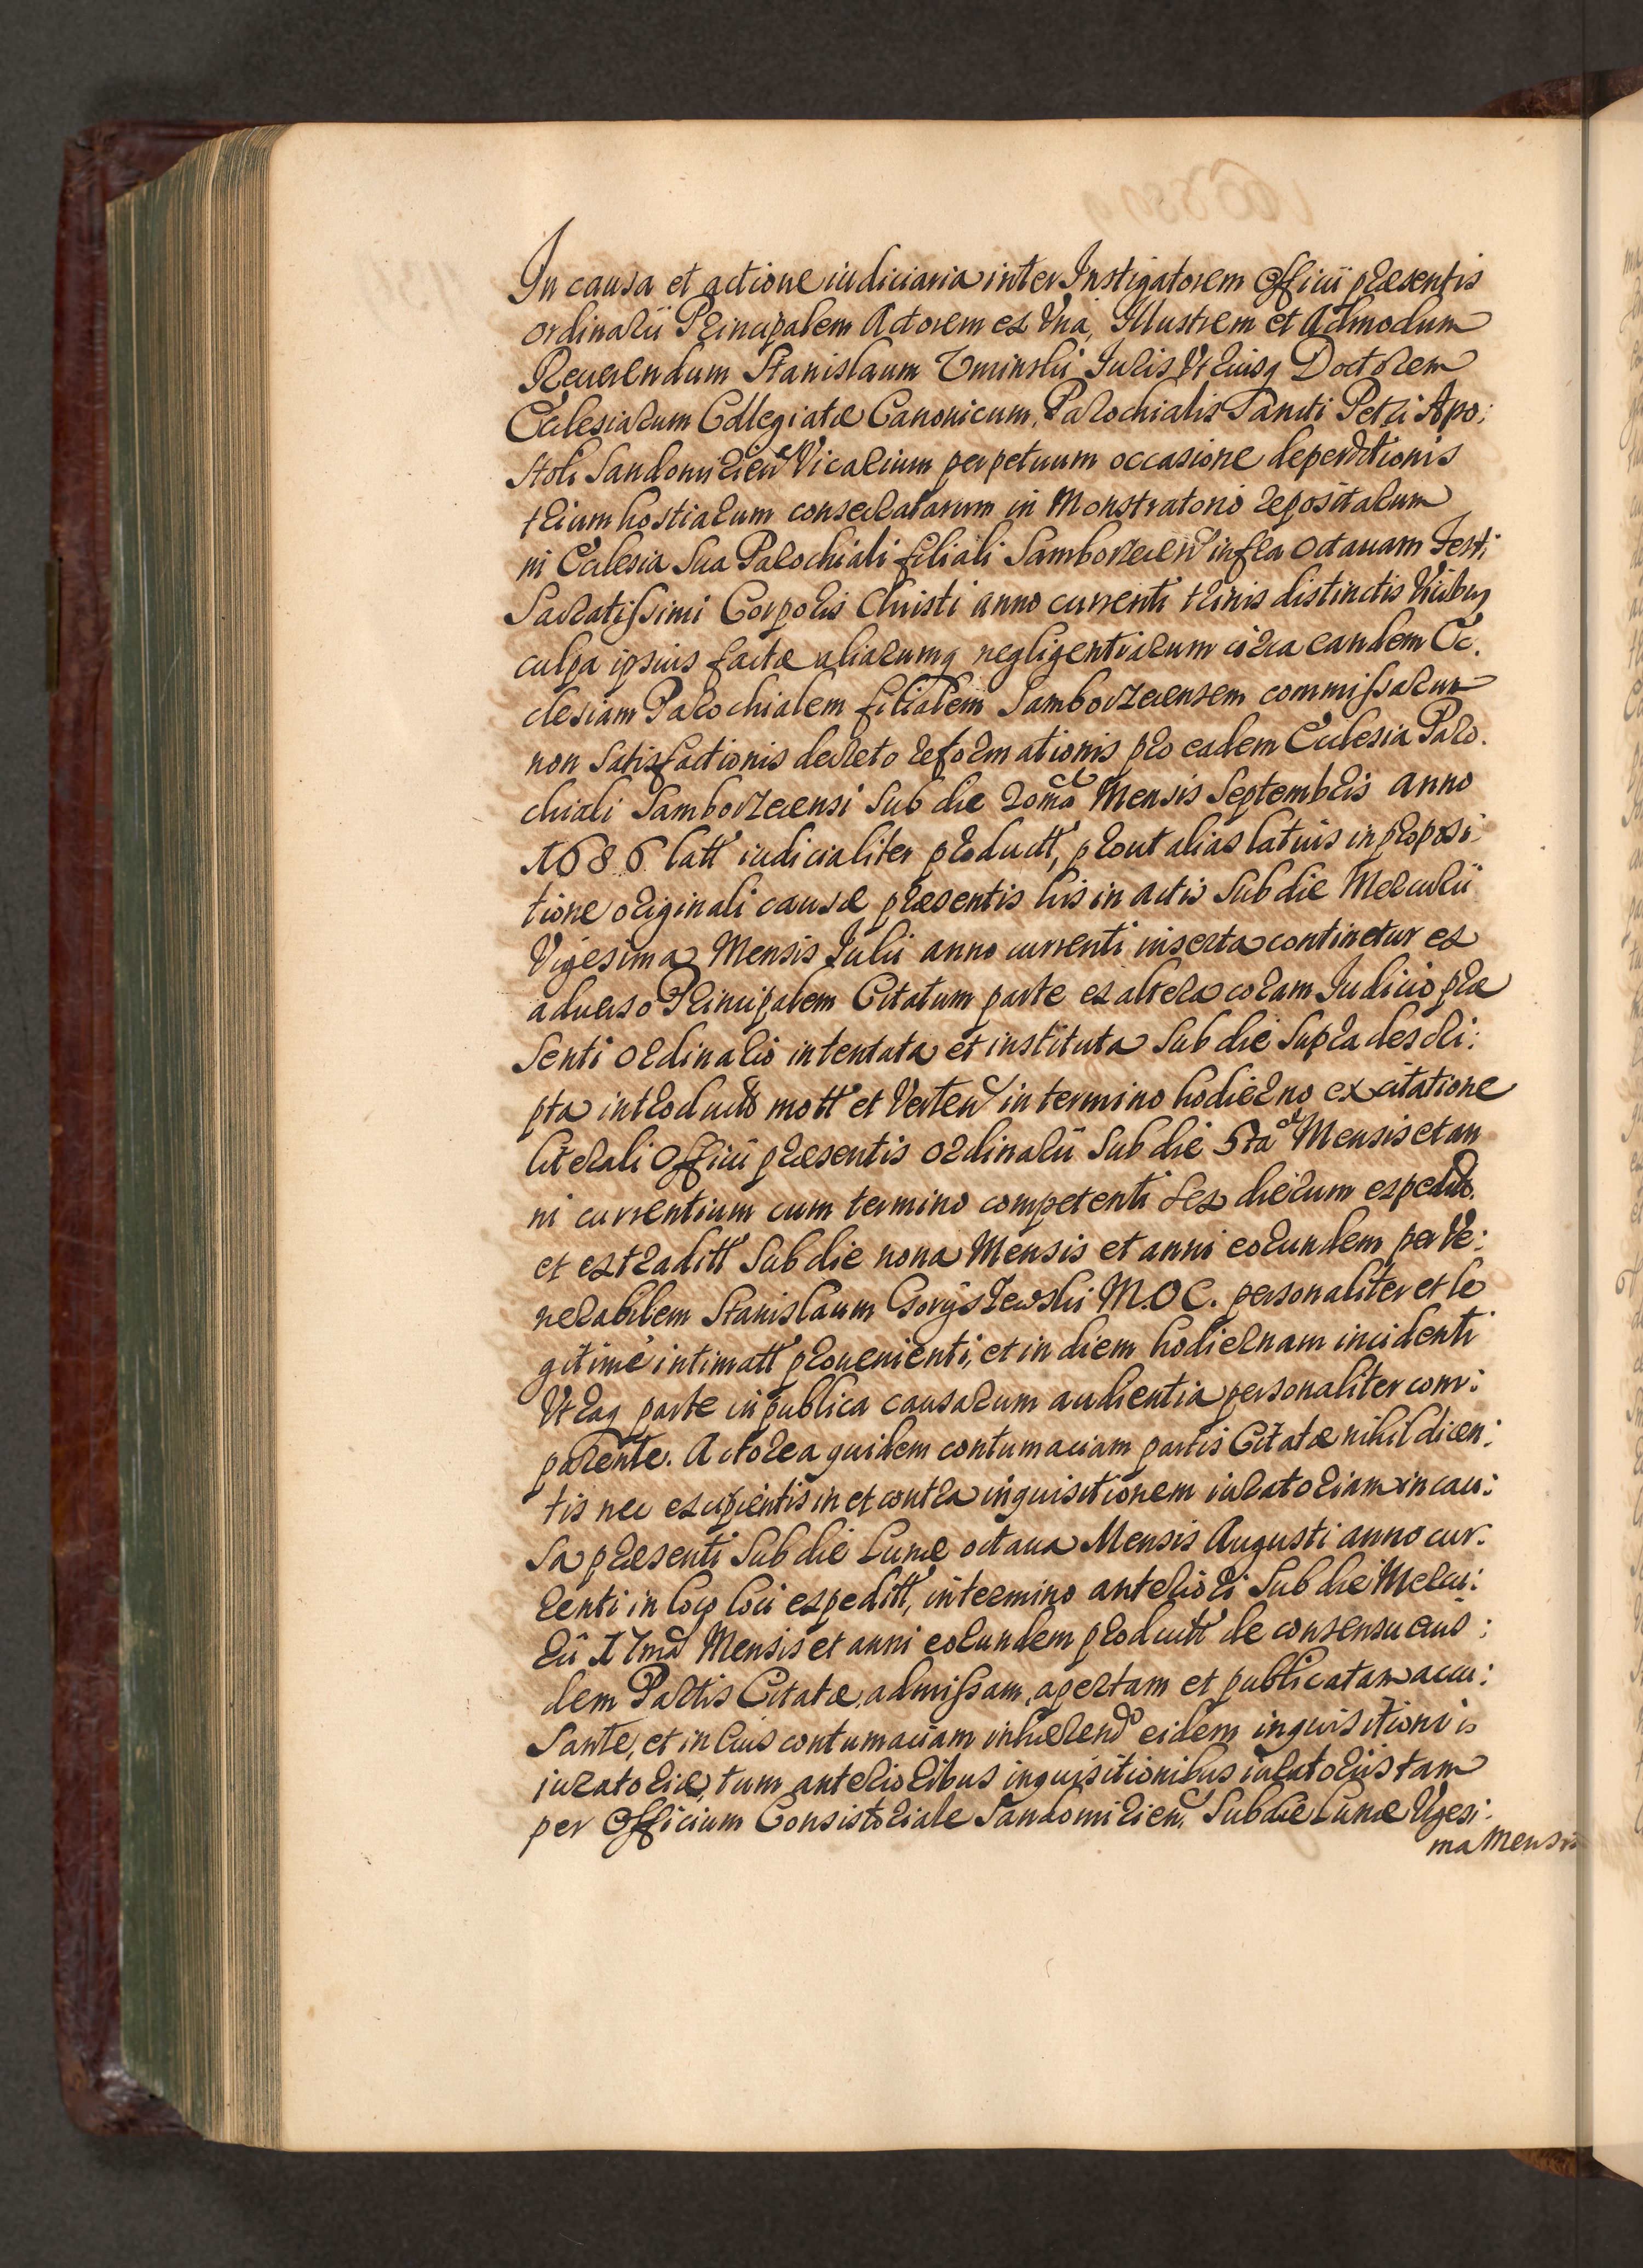 In causa et actione iudiciaria inter Instigatorem Officii præsentis
ordinarii Principalem Actorem ex Vna, Illustrem et Admodum
Reuerendum Stanislaum Zminski Iuris Vtriusq Doctorem
Ecclesiarum Collegiatæ Canonicum, Parochialis Sancti Petri Apo:
stoli Sandomirien Vicarium perpetuum occasione deperditionis
trium hostiarum consecratarum in Monstratorio repositarum
in Ecclesia sua Parochiali filiali Samborzecen infra Octauam Festi
Sacratissimi Corporis Christi anno currenti trinis distinctis Vicibus
culpa ipsius factæ aliarumq negligentiarum circa eandem Ec.
clesiam Parochialem filialem Samborzecensem commissarum
non satisfactionis decreto reformationis pro eadem Ecclesia Paro.
chiali Samborzecensi sub die 20ma Mensis Septembris anno
1686 latt iudicialiter productt, prout alias latius in proposi:
tione originali causæ præsentis his in actis sub die Mercurii
Vigesima Mensis Iulii anno currenti inserta continetur ex
aduerso Principalem Citatum parte ex altera coram Iudicio præ
senti Ordinario intentata et instituta sub die supra descri:
pta introducto mott et Verten in termino hodierno ex citatione
literali Officii præsentis ordinarii sub die 5ta Mensis et an
ni currentium cum termino competenti sex dierum expedit.
et extraditt sub die nona Mensis et anni eorundem per Ve:
nerabilem Stanislaum Goryszewski M.O.C. personaliter et le
gitimè intimatt prouenienti, et in diem hodiernam incidenti
Vtraq parte in publica causarum audientia personaliter com:
parente. Actorea quidem contumaciam partis Citatæ nihil dicen:
tis nec excipientis in et contra inquisitionem iuratoriam in cau:
sa præsenti sub die Lunæ octaua Mensis Augusti anno cur.
renti in loco loci expeditt, in termino anteriori sub die Mercu:
rii 17ma Mensis et anni eorundem productt de consensu eius:
dem Partis Citatæ, admissam, apertam et publicatam accu:
sante, et in Eius contumaciam inhærendo eidem inquisitioni
juratoriæ, tum anterioribus inquisitionibus iuratoriis tam
per Officium Consistoriale Sandomirien sub die Lunæ Vigesi:
ma Mensis